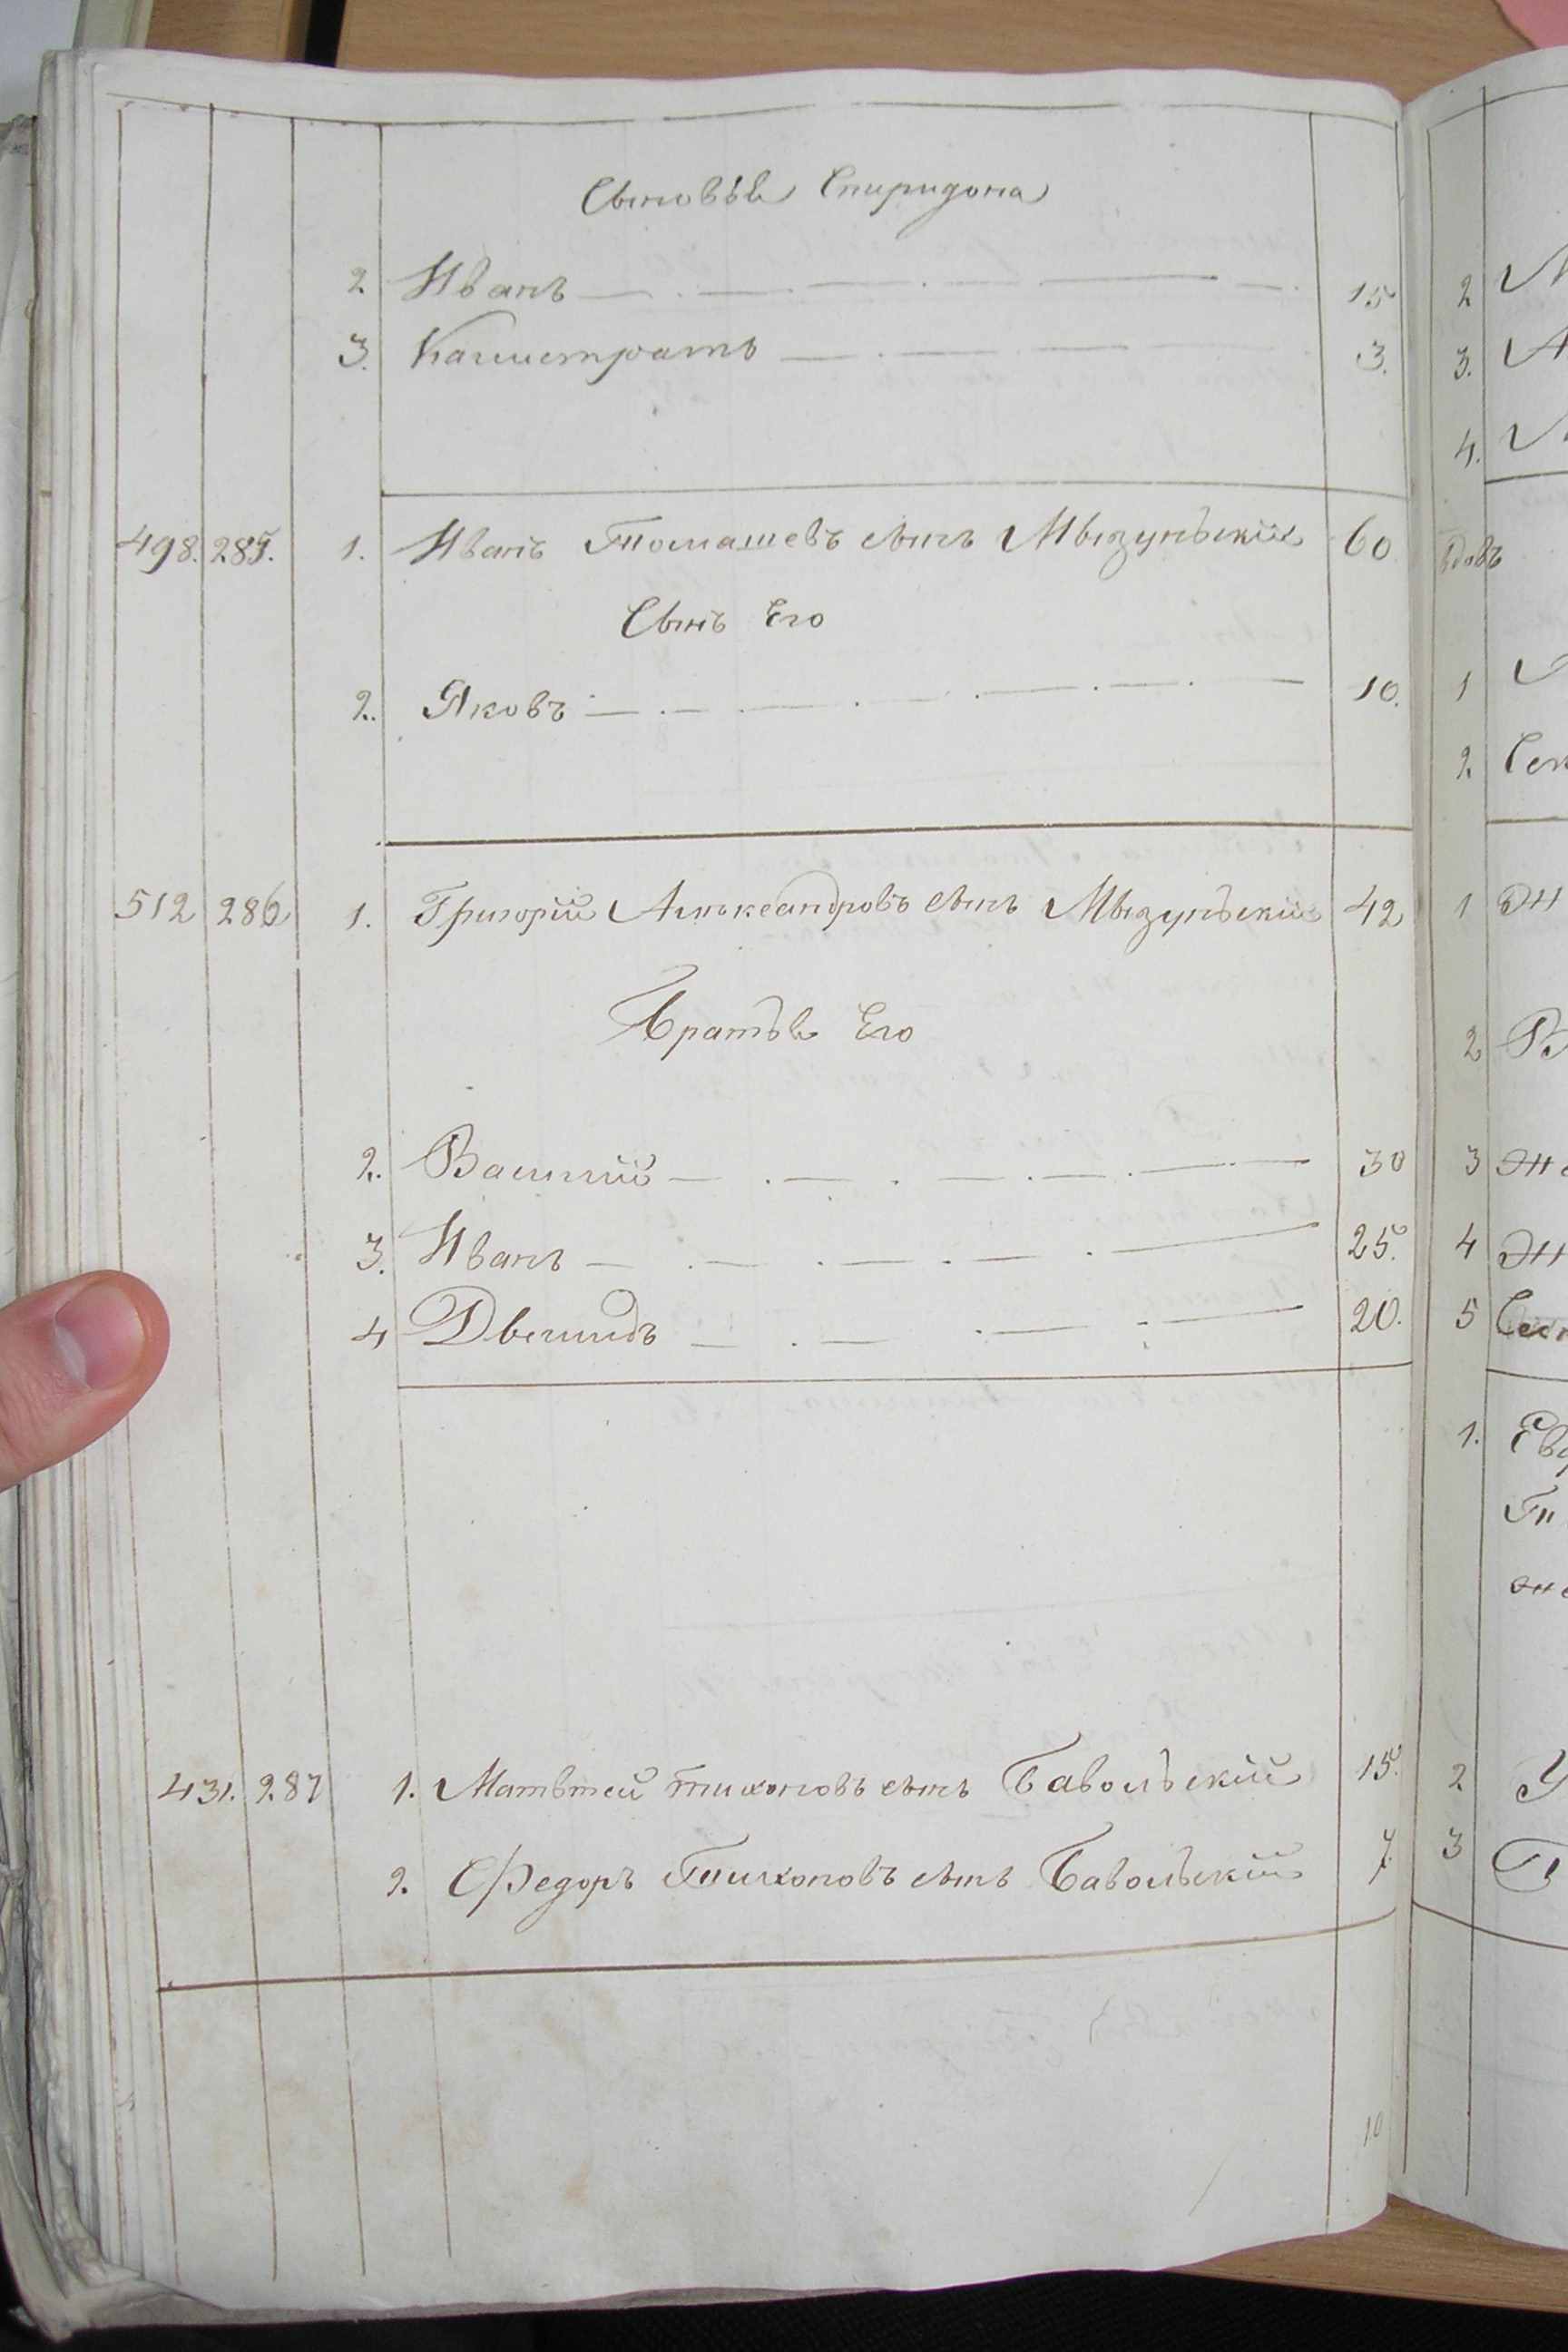 Сыновья Спиридона
2 Иванъ 15
3. Калистратъ 3.
498. 285. 1. Иванъ Томашевъ сынъ Мызунскій 60
Сынъ Его
2. Яковъ 10.
512 286 1. Григорій Александровъ сынъ Мызунскій 42
Братья Его
2. Василий 30
3. Иванъ 25.
4 20.
431. 287 1. Матвѣей Тихоновъ сынъ Бавольскій 15.
2. Федоръ Тихоновъ сынъ Бавольскій 7.
10
2
3.
4.
вдовъ
1
2.
1
2
3
4
5
1.
2
3